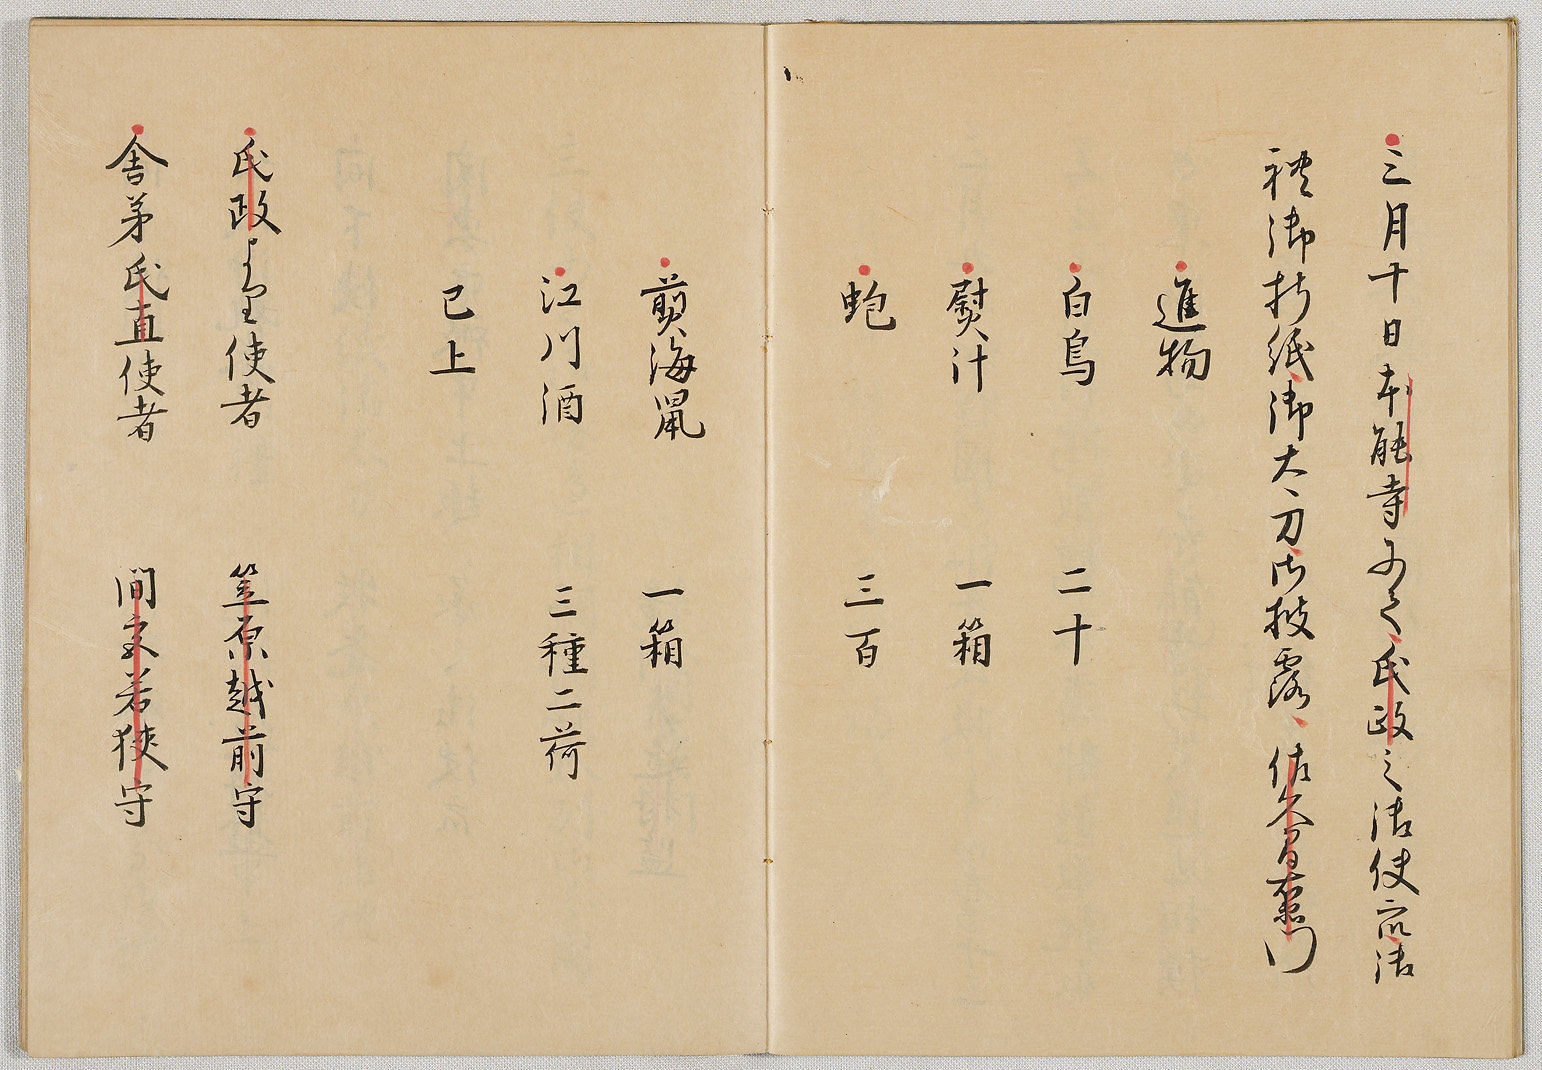 三月十日本能寺ニて氏政之御使衆御
礼御折紙御太刀御披露佐久間右衛門
進物
白鳥 二十
熨汁 一箱
鮑 三百
煎海鼠 一箱
江川酒 三種二荷
已上
氏政より使者 笠原越前守
舎弟氏直使者 間宮若狭守